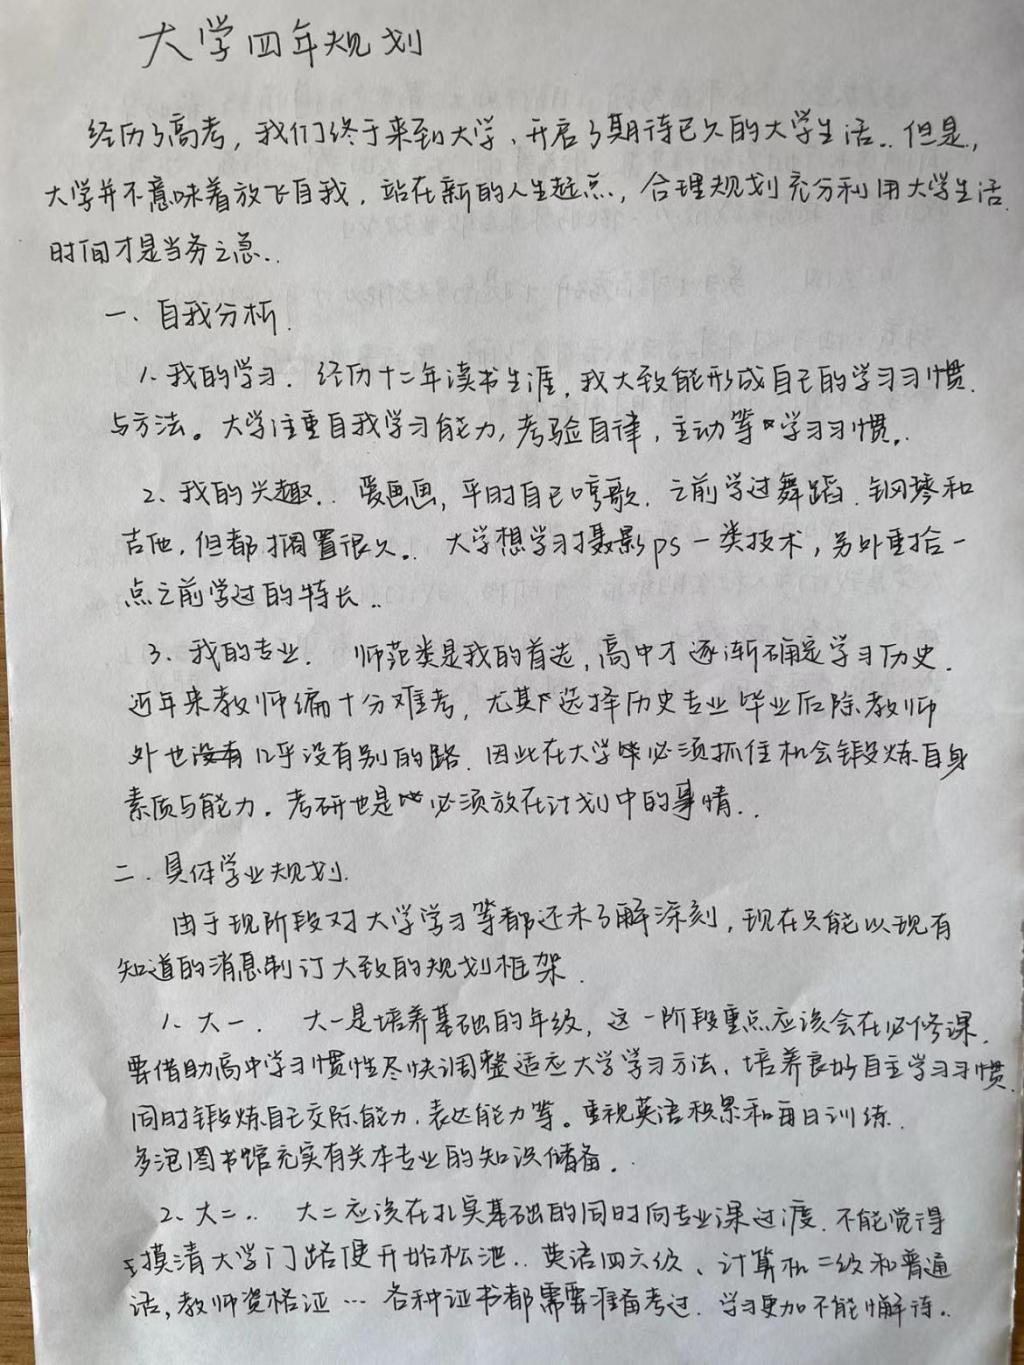 大学四年规划
经历了高考,我们终于来到大学、开启了期待已久的大学生活..但是,
大学并不意味着放飞自我,站在新的人生起点,合理规划充分利用大学生活
时间才是当务之急..
一、自我分析.
1、我的学习. 经历十二年读书生涯,我大致能形成自己的学习习惯
与方法。大学注重自我学习能力,考验自律,主动等学习习惯..
2、我的兴趣.. 爱画画,平时自己哼歌.之前学过舞蹈.钢琴和
吉他,但都搁置很久.. 大学想学习摄影ps一类技术,另外重拾一
点之前学过的特长..
3、我的专业. 师范类是我的首选,高中才逐渐确定学习历史.
近年来教师编十分难考,尤其选择历史专业毕业后除教师
外也几乎没有别的路.因此在大学必须抓住机会锻炼自身
素质与能力.考研也是必须放在计划中的事情..
二.具体学业规划.
由于现阶段对大学学习等都还未了解深刻,现在只能以现有
知道的消息制订大致的规划框架.
1、大一. 大一是培养基础的年级,这一阶段重点应该会在必修课.
要借助高中学习惯性尽快调整适应大学学习方法、培养良好自主学习习惯.
同时锻炼自己交际能力,表达能力等。重视英语积累和每日训练.
多泡图书馆充实有关本专业的知识储备.
2、大二.. 大二应该在扎实基础的同时向专业课过渡.不能觉得
摸清大学门路便开始松池..英语四六级、计算机二级和普通
话,教师资格证…各种证书都需要准备考过.学习更加不能懈待..